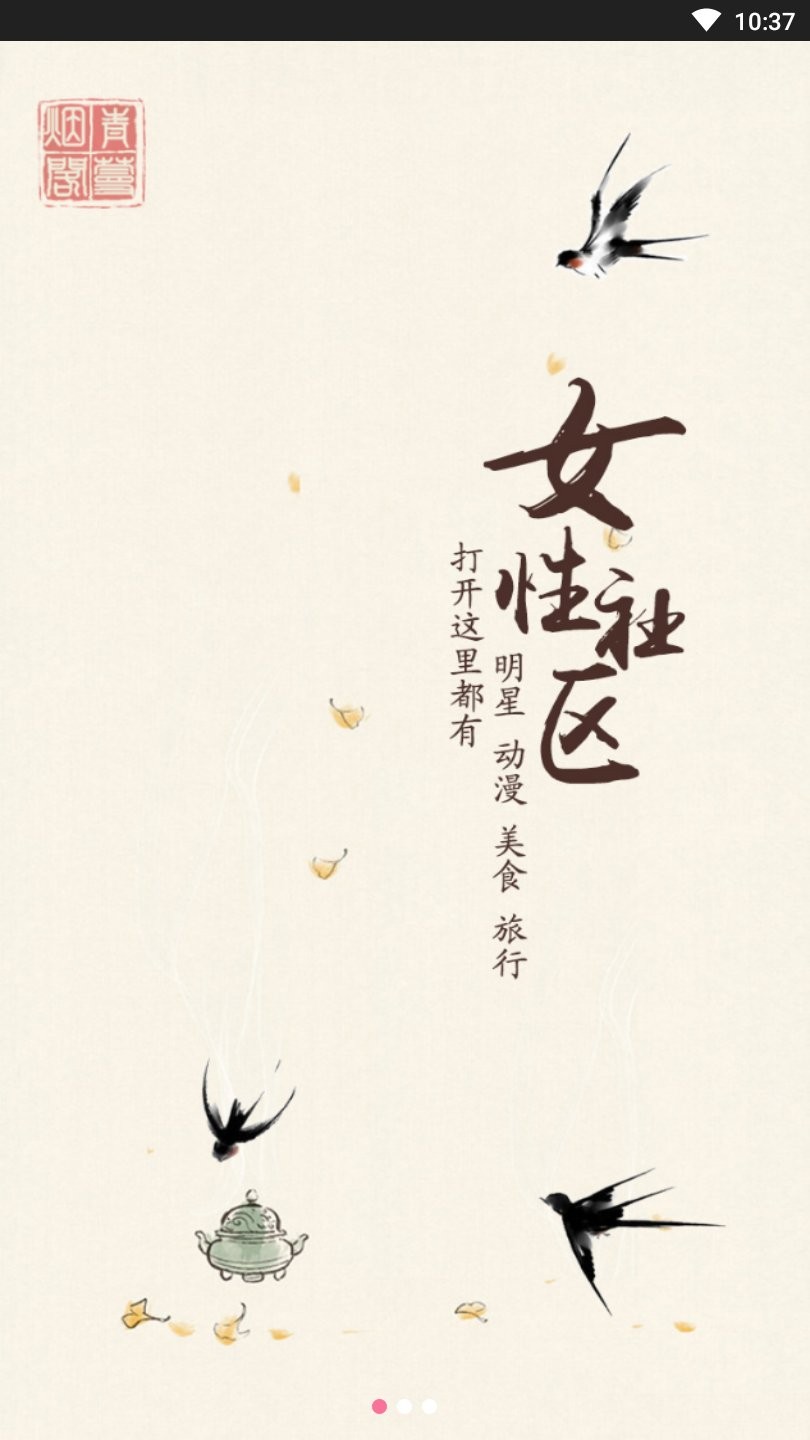 10:37
青蔓
烟阁
女性社区
明星 动漫 美食 旅行
打开这里都有